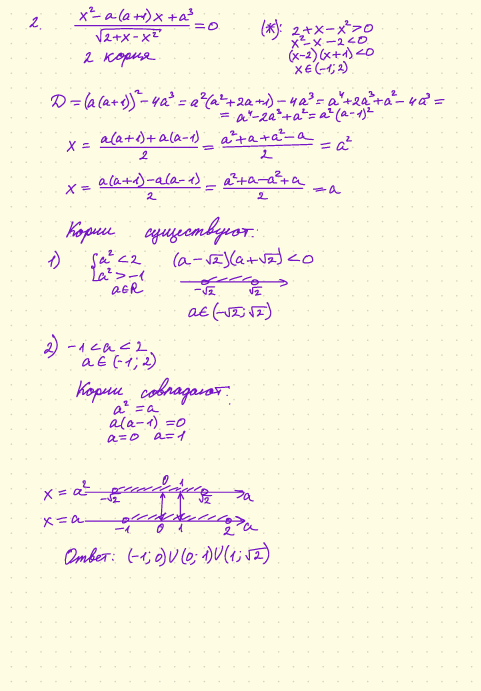 2. (x² - a(a+1)x + a³)/√(2+x-x²) = 0
2 корня
(*): 2+x-x²>0
x²-x-2<0
(x-2)(x+1)<0
x∈(-1;2)
D = (a(a+1))² - 4a³ = a²(a²+2a+1) - 4a³ = a⁴+2a³+a² - 4a³ =
= a⁴-2a³+a² = a²(a-1)²
x = (a(a+1)+a(a-1))/2 = (a²+a+a²-a)/2 = a²
x = (a(a+1)-a(a-1))/2 = (a²+a-a²+a)/2 = a
Корни существуют:
1) {a²<2 (a-√2)(a+√2)<0
{a²>-1
a∈R
-√2 √2
a∈(-√2;√2)
2) -1<a<2
a∈(-1;2)
Корни совпадают:
a²=a
a(a-1)=0
a=0 a=1
x=a² -√2 0 1 √2 a
x=a -1 0 1 2 a
Ответ: (-1;0)∪(0;1)∪(1;√2)